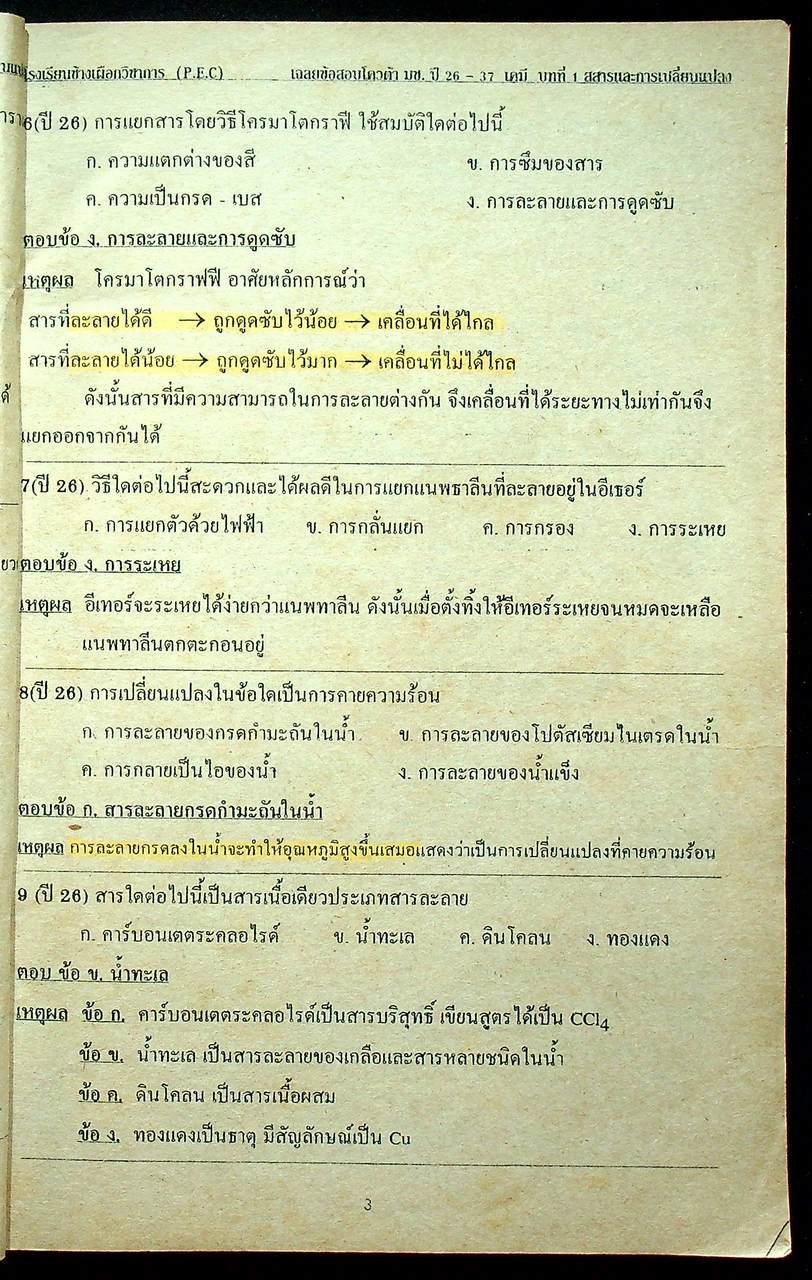 โรงเรียนช้างเผือกวิชาการ (P.E.C) เฉลยข้อสอบโควต้า มช. ปี 26 - 37 เคมี บทที่ 1 สสารและการเปลี่ยนแปลง
6(ปี 26) การแยกสารโดยวิธีโครมาโตกราฟี ใช้สมบัติใดต่อไปนี้
ก. ความแตกต่างของสี ข. การซึมของสาร
ค. ความเป็นกรด - เบส ง. การละลายและการดูดซับ
ตอบข้อ ง. การละลายและการดูดซับ
เหตุผล โครมาโตกราฟฟี อาศัยหลักการณ์ว่า
สารที่ละลายได้ดี → ถูกดูดซับไว้น้อย → เคลื่อนที่ได้ไกล
สารที่ละลายได้น้อย → ถูกดูดซับไว้มาก → เคลื่อนที่ไม่ได้ไกล
ดังนั้นสารที่มีความสามารถในการละลายต่างกัน จึงเคลื่อนที่ได้ระยะทางไม่เท่ากันจึง
แยกออกจากกันได้
7(ปี 26) วิธีใดต่อไปนี้สะดวกและได้ผลดีในการแยกแนพธาลีนที่ละลายอยู่ในอีเธอร์
ก. การแยกตัวด้วยไฟฟ้า ข. การกลั่นแยก ค. การกรอง ง. การระเหย
ตอบข้อ ง. การระเหย
เหตุผล อีเทอร์จะระเหยได้ง่ายกว่าแนพทาลีน ดังนั้นเมื่อตั้งทิ้งให้อีเทอร์ระเหยจนหมดจะเหลือ
แนพทาลีนตกตะกอนอยู่
8(ปี 26) การเปลี่ยนแปลงในข้อใดเป็นการคายความร้อน
ก. การละลายของกรดกำมะถันในน้ำ ข. การละลายของโปตัสเซียมไนเตรดในน้ำ
ค. การกลายเป็นไอของน้ำ ง. การละลายของน้ำแข็ง
ตอบข้อ ก. สารละลายกรดกำมะถันในน้ำ
เหตุผล การละลายกรดลงในน้ำจะทำให้อุณหภูมิสูงขึ้นเสมอแสดงว่าเป็นการเปลี่ยนแปลงที่คายความร้อน
9 (ปี 26) สารใดต่อไปนี้เป็นสารเนื้อเดียวประเภทสารละลาย
ก. คาร์บอนเตตระคลอไรด์ ข. น้ำทะเล ค. ดินโคลน ง. ทองแดง
ตอบ ข้อ ข. น้ำทะเล
เหตุผล ข้อ ก. คาร์บอนเตตระคลอไรด์เป็นสารบริสุทธิ์ เขียนสูตรได้เป็น CCl4
ข้อ ข. น้ำทะเล เป็นสารละลายของเกลือและสารหลายชนิดในน้ำ
ข้อ ค. ดินโคลน เป็นสารเนื้อผสม
ข้อ ง. ทองแดงเป็นธาตุ มีสัญลักษณ์เป็น Cu
3